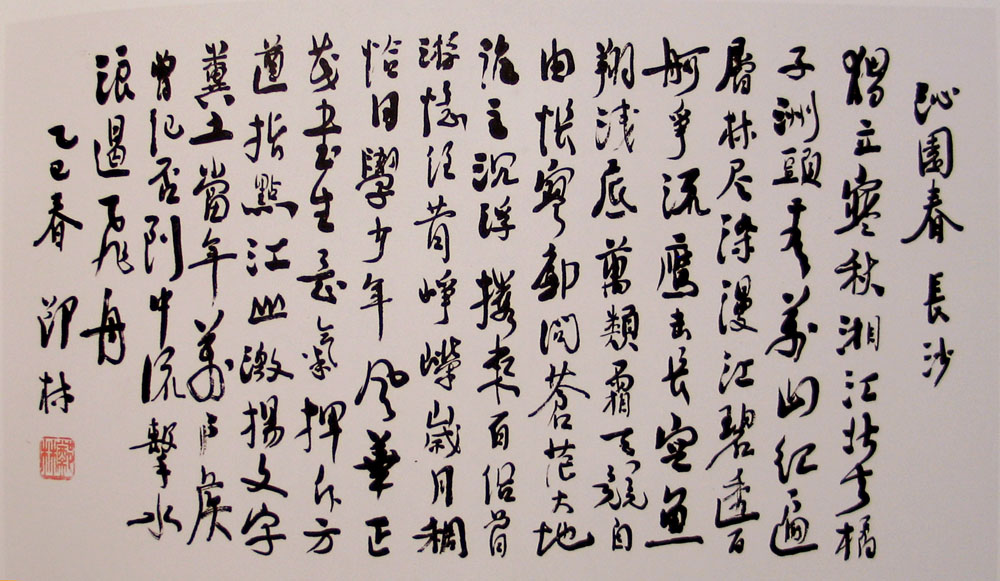 沁園春 長沙
獨立寒秋湘江北去橘
子洲頭看萬山紅遍
層林尽染漫江碧透百
舸爭流鷹击长空魚
翔浅底萬類霜天競自
由悵寥廓问蒼茫大地
誰主沉浮携来百侣曾
游憶往昔崢嶸歲月稠
恰同學少年風華正
茂書生意氣揮斥方
遒指點江山激揚文字
糞土當年萬户侯
曾记否到中流擊水
浪遏飞舟
乙巳春 郑林